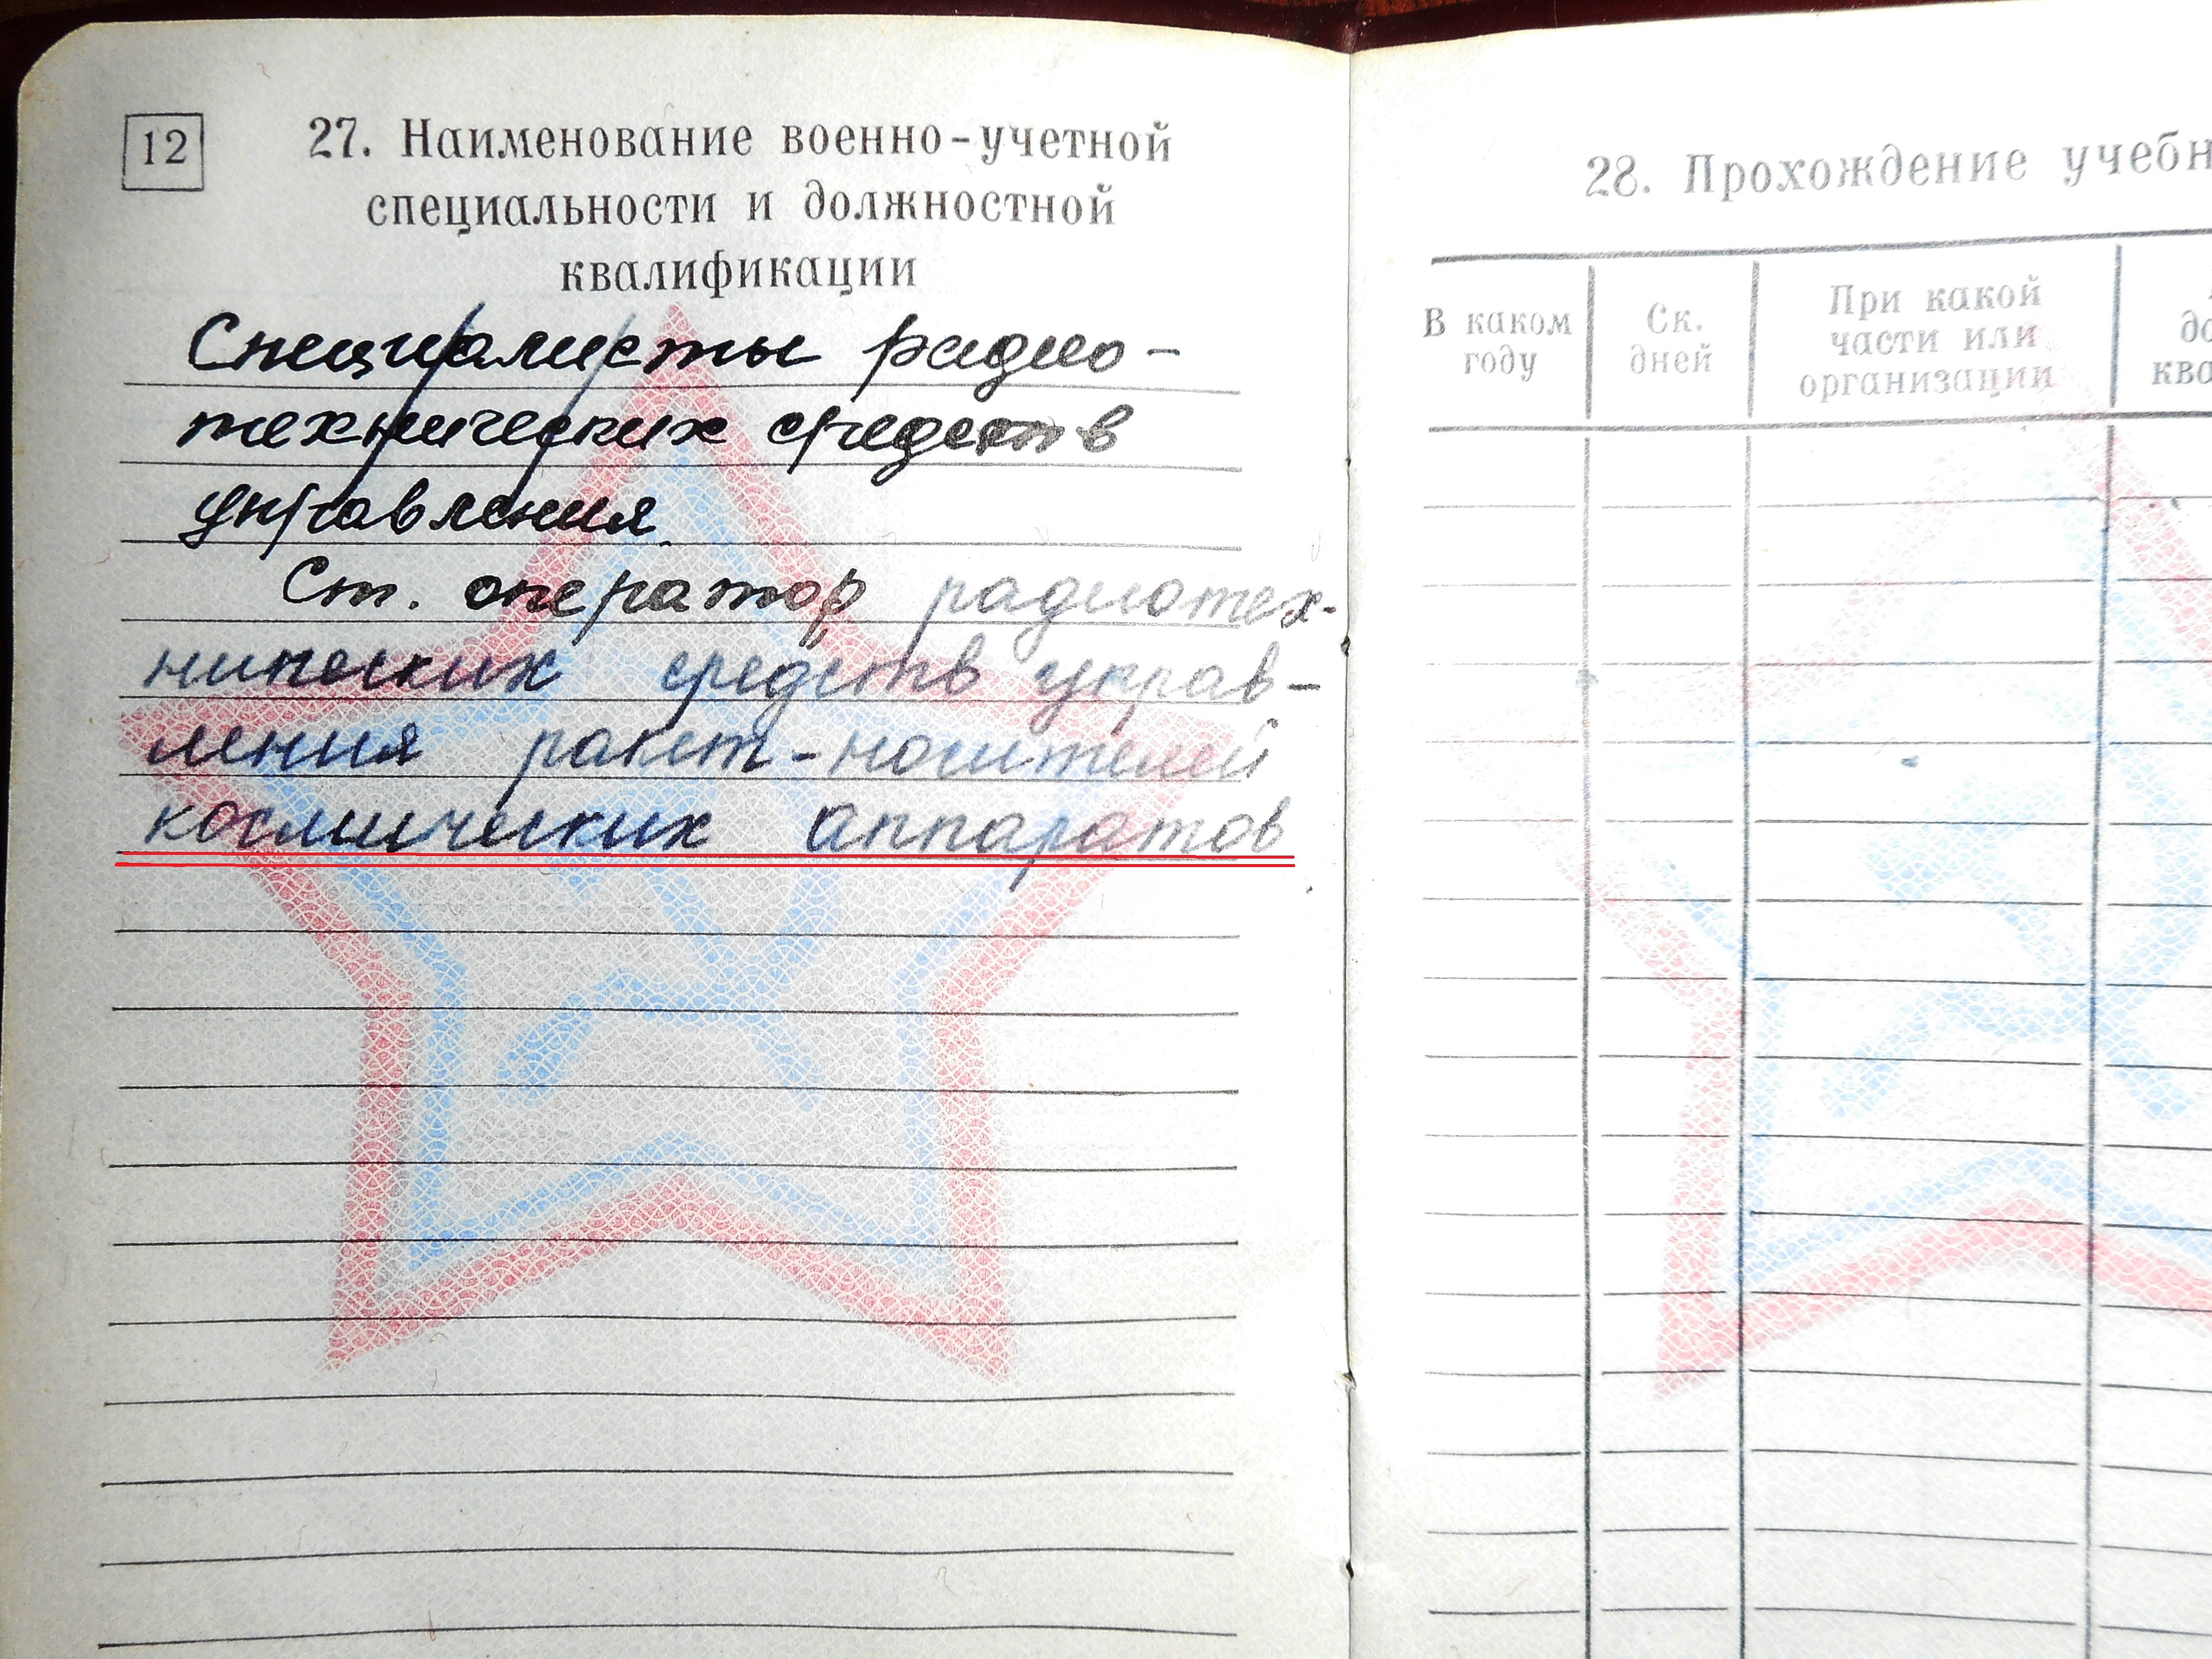 12
27. Наименование военно-учетной
специальности и должностной
квалификации
Специалисты радио-
технических средств
управления
Ст. оператор радиотех-
нических средств управ-
ления ракет-носителей
космических аппаратов
28. Прохождение учебн
В каком
году
Ск.
дней
При какой
части или
организации
до
ква